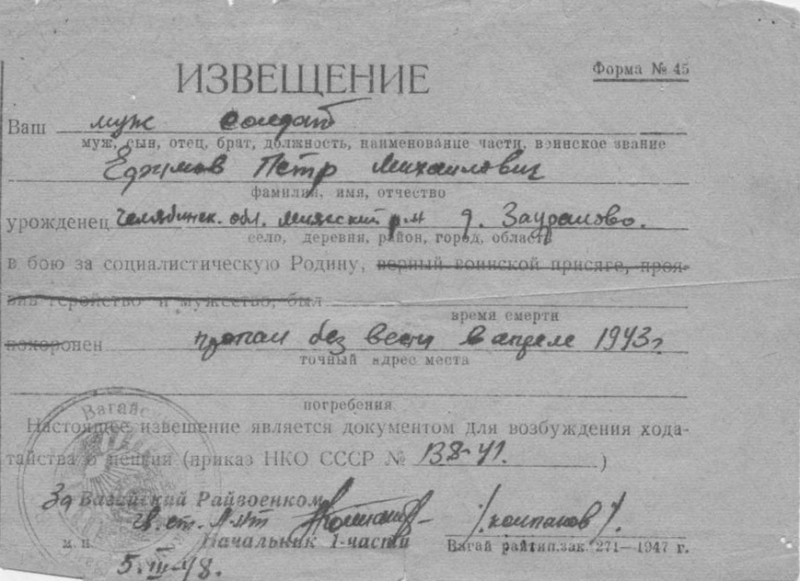 ИЗВЕЩЕНИЕ
Форма № 45
Ваш муж солдат
муж, сын, отец, брат, должность, наименование части, воинское звание
Ефимов Петр Михайлович
фамилия, имя, отчество
урожденец Челябинск. обл. Миасский р-н д. Зауралово.
село, деревня, район, город, область
в бою за социалистическую Родину, верный воинской присяге, проя-
вив геройство и мужество, был
время смерти
похоронен пропал без вести в апреле 1943 г.
точный адрес места
погребения
Настоящее извещение является документом для возбуждения хода-
тайства о пенсии (приказ НКО СССР № 138-41. )
За Вагайский Райвоенком
Гв. ст. л-нт /Колпаков/.
м. п. Начальник 1-части Вагай райтип. зак. 271—1947 г.
5.III-48.
Вагайс